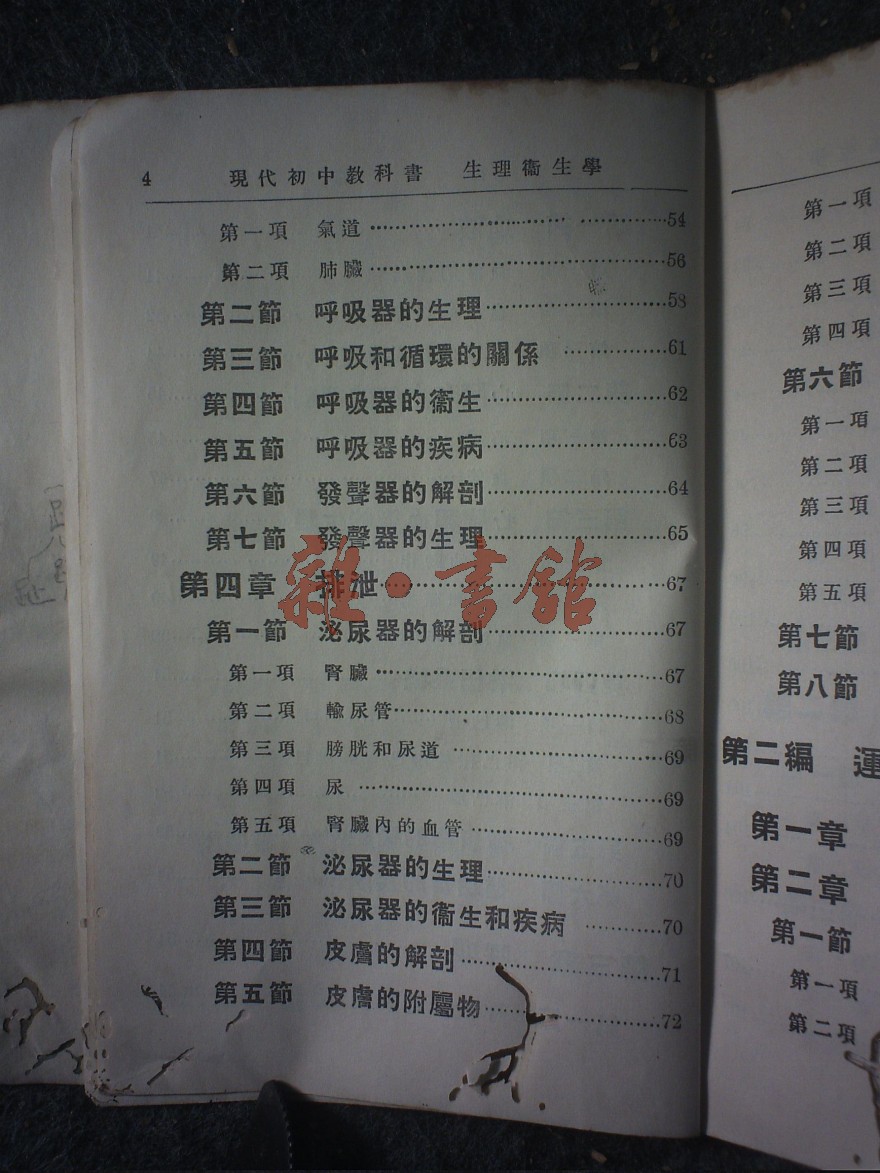 4 現代初中教科書 生理衞生學
第一項 氣道……54
第二項 肺臟……56
第二節 呼吸器的生理……58
第三節 呼吸和循環的關係……61
第四節 呼吸器的衞生……62
第五節 呼吸器的疾病……63
第六節 發聲器的解剖……64
第七節 發聲器的生理……65
第四章 排泄……67
第一節 泌尿器的解剖……67
第一項 腎臟……67
第二項 輸尿管……68
第三項 膀胱和尿道……69
第四項 尿……69
第五項 腎臟內的血管……69
第二節 泌尿器的生理……70
第三節 泌尿器的衞生和疾病……70
第四節 皮膚的解剖……71
第五節 皮膚的附屬物……72
雜·書館
第一項
第二項
第三項
第四項
第六節
第一項
第二項
第三項
第四項
第五項
第七節
第八節
第二編 運
第一章
第二章
第一節
第一項
第二項